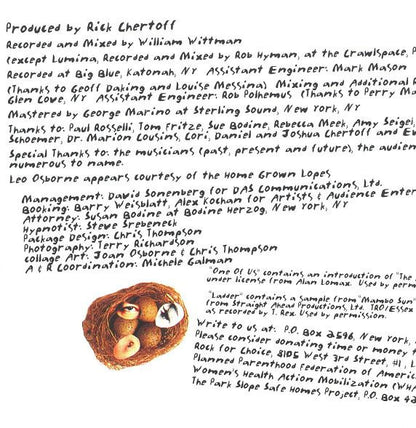 Produced by Rick Chertoff
Recorded and Mixed by William Wittman
(except Lumina, Recorded and Mixed by Rob Hyman, at the Crawlspace, P
Recorded at Big Blue, Katonah, NY Assistant Engineer: Mark Mason
(Thanks to Geoff Daking and Louise Messina) Mixing and Additional R
Glen Cove, NY Assistant Engineer: Rob Polhemus (Thanks to Perry Ma
Mastered by George Marino at Sterling Sound, New York, NY
Thanks to: Paul Rosselli, Tom Fritze, Sue Bodine, Rebecca Meek, Amy Seigel,
Schoemer, Dr. Marion Cousins, Cori, Daniel and Joshua Chertoff and Ev
Special Thanks to: the musicians (past, present and future), the audien
numerous to name.
Leo Osborne appears courtesy of the Home Grown Lopes
Management: David Sonenberg for DAS Communications, Ltd.
Booking: Barry Weisblatt, Alex Kochan for Artists & Audience Enter
Attorney: Susan Bodine at Bodine Herzog, New York, NY
Hypnotist: Steve Srebeneck
Package Design: Chris Thompson
Photography: Terry Richardson
collage Art: Joan Osborne & Chris Thompson
A & R Coordination: Michele Galman
"One Of Us" contains an introduction of "The
under license from Alan Lomax. Used by perm
"Ladder" contains a sample from "Mambo Sun"
from Straight Ahead Productions, Ltd. TRO/Essex
as recorded by T. Rex. Used by permission.
Write to us at: P.O. Box 2596, New York,
Please consider donating time or money t
Rock for Choice, 8105 West 3rd Street, #1, L
Planned Parenthood Federation of Americ
Women's Health Action Mobilization (WHA
The Park Slope Safe Homes Project, P.O. Box 42